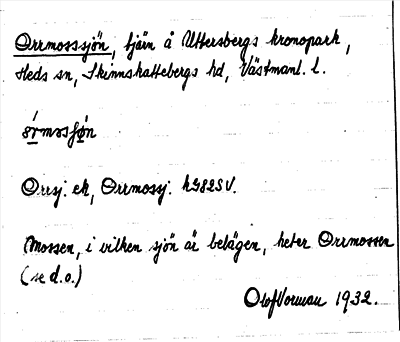 Orrmosssjön, tjärn å Uttersbergs kronopark,
Heds sn, Skinnskattebergs hd, Västmanl. l.
Orrsj. ek, Orrmossj. hG82SV.
Mossen, i vilken sjön är belägen, heter Orrmossen
(se d.o.)
Olof Vorman 1932.